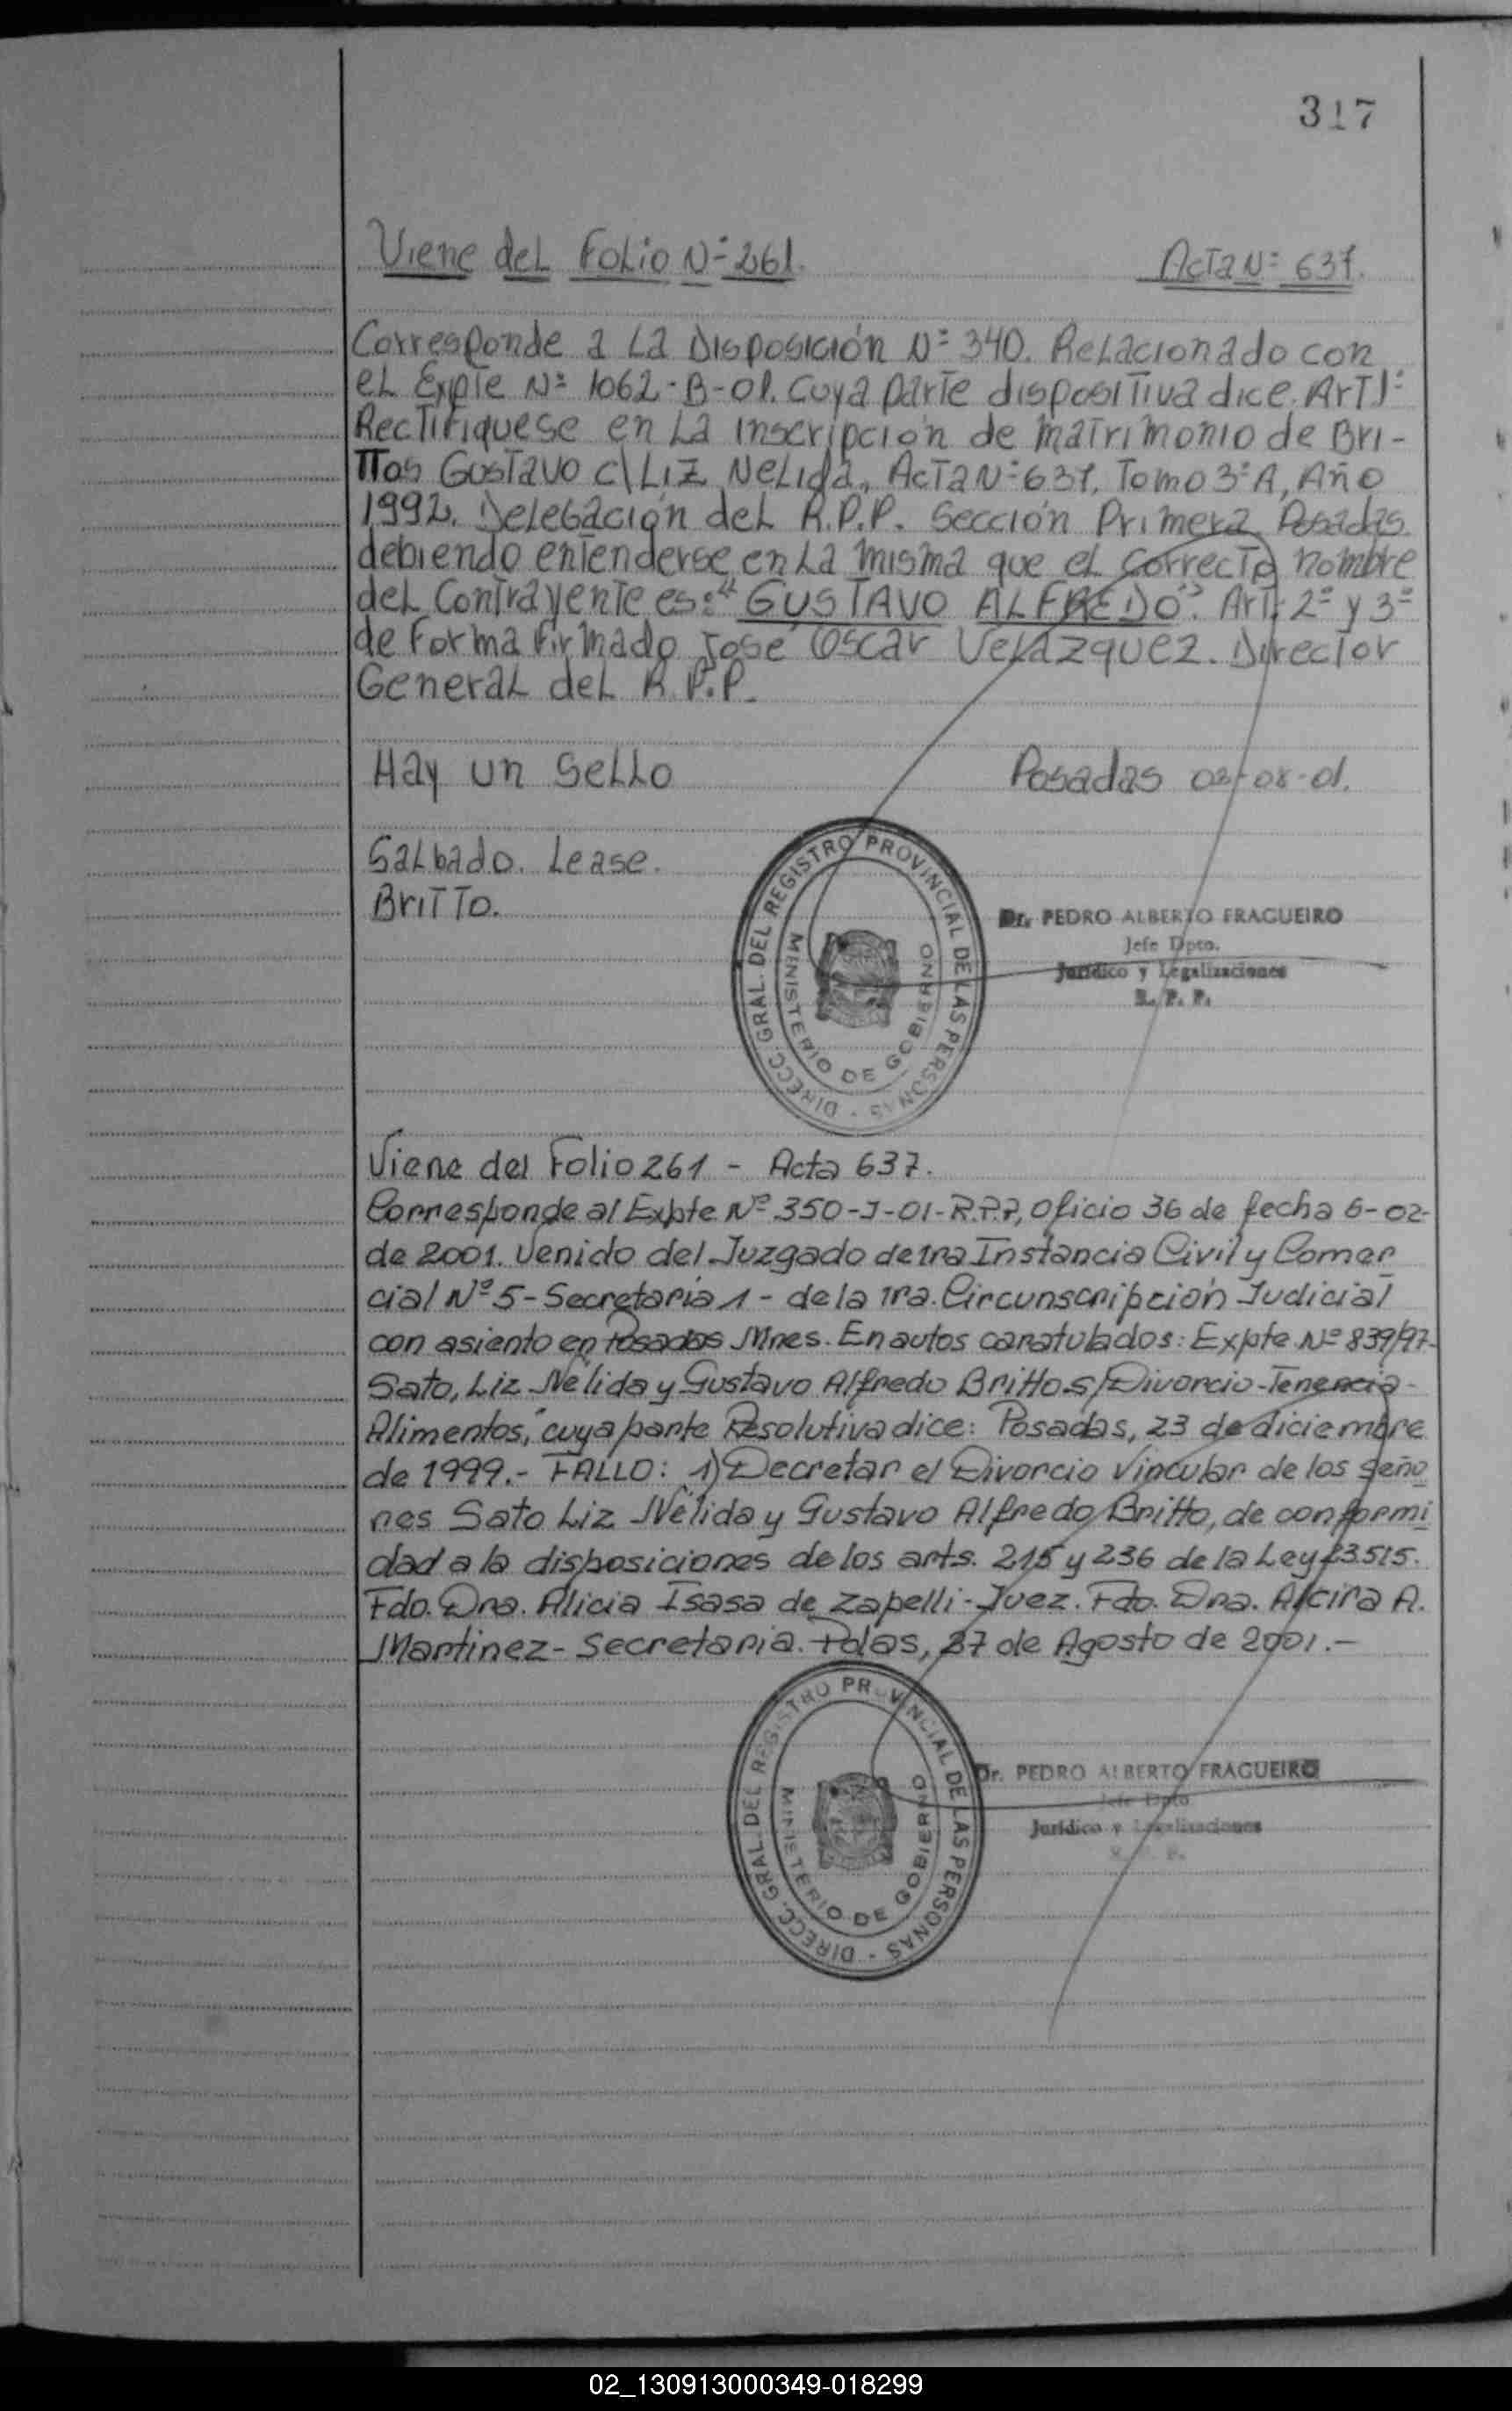 317
Viene del Folio Nº 261. Acta Nº 637.
Corresponde a La Disposición Nº 340. Relacionado con
el Expte Nº 1062-B-01. Cuya parte dispositiva dice. Art 1º
Rectifiquese en La Inscripción de matrimonio de Bri-
ttos Gustavo c\ Liz Nelida, Acta Nº 637, Tomo 3º A, Año
1992, Delegación del R.P.P. Sección Primera Posadas.
debiendo entenderse en La misma que el correcto nombre
del Contrayente es: "GUSTAVO ALFREDO". Art. 2º y 3º
de Forma Firmado Jose Oscar Velazquez. Director
General del R.P.P.
Hay un Sello Posadas 02-08-01.
Salbado. Lease.
Britto.
DIRECC. GRAL. DEL REGISTRO PROVINCIAL DE LAS PERSONAS
MINISTERIO DE GOBIERNO
Dr. PEDRO ALBERTO FRAGUEIRO
Jefe Dpto.
Jurídico y Legalizaciones
R. P. P.
Viene del Folio 261 - Acta 637.
Corresponde al Expte Nº 350-J-01-R.P.P, Oficio 36 de fecha 6-02-
de 2001. Venido del Juzgado de 1ra Instancia Civil y Comer
cial Nº 5 - Secretaría 1 - de la 1ra. Circunscripción Judicial
con asiento en Posadas Mnes. En autos caratulados: Expte Nº 839/97-
Sato, Liz Nélida y Gustavo Alfredo Britto S/Divorcio-Tenencia-
Alimentos," cuya parte Resolutiva dice: Posadas, 23 de diciembre
de 1999.- FALLO: 1) Decretar el Divorcio Vincular de los seño
res Sato Liz Nélida y Gustavo Alfredo Britto, de conformi
dad a la disposiciones de los arts. 215 y 236 de la Ley 23.515.
Fdo. Dra. Alicia Isasa de Zapelli - Juez. Fdo. Dra. Alcira A.
Martinez - Secretaria. Pdas, 27 de Agosto de 2001.-
DIRECC. GRAL. DEL REGISTRO PROVINCIAL DE LAS PERSONAS
MINISTERIO DE GOBIERNO
Dr. PEDRO ALBERTO FRAGUEIRO
Jefe Dpto
Jurídico y Legalizaciones
02_130913000349-018299